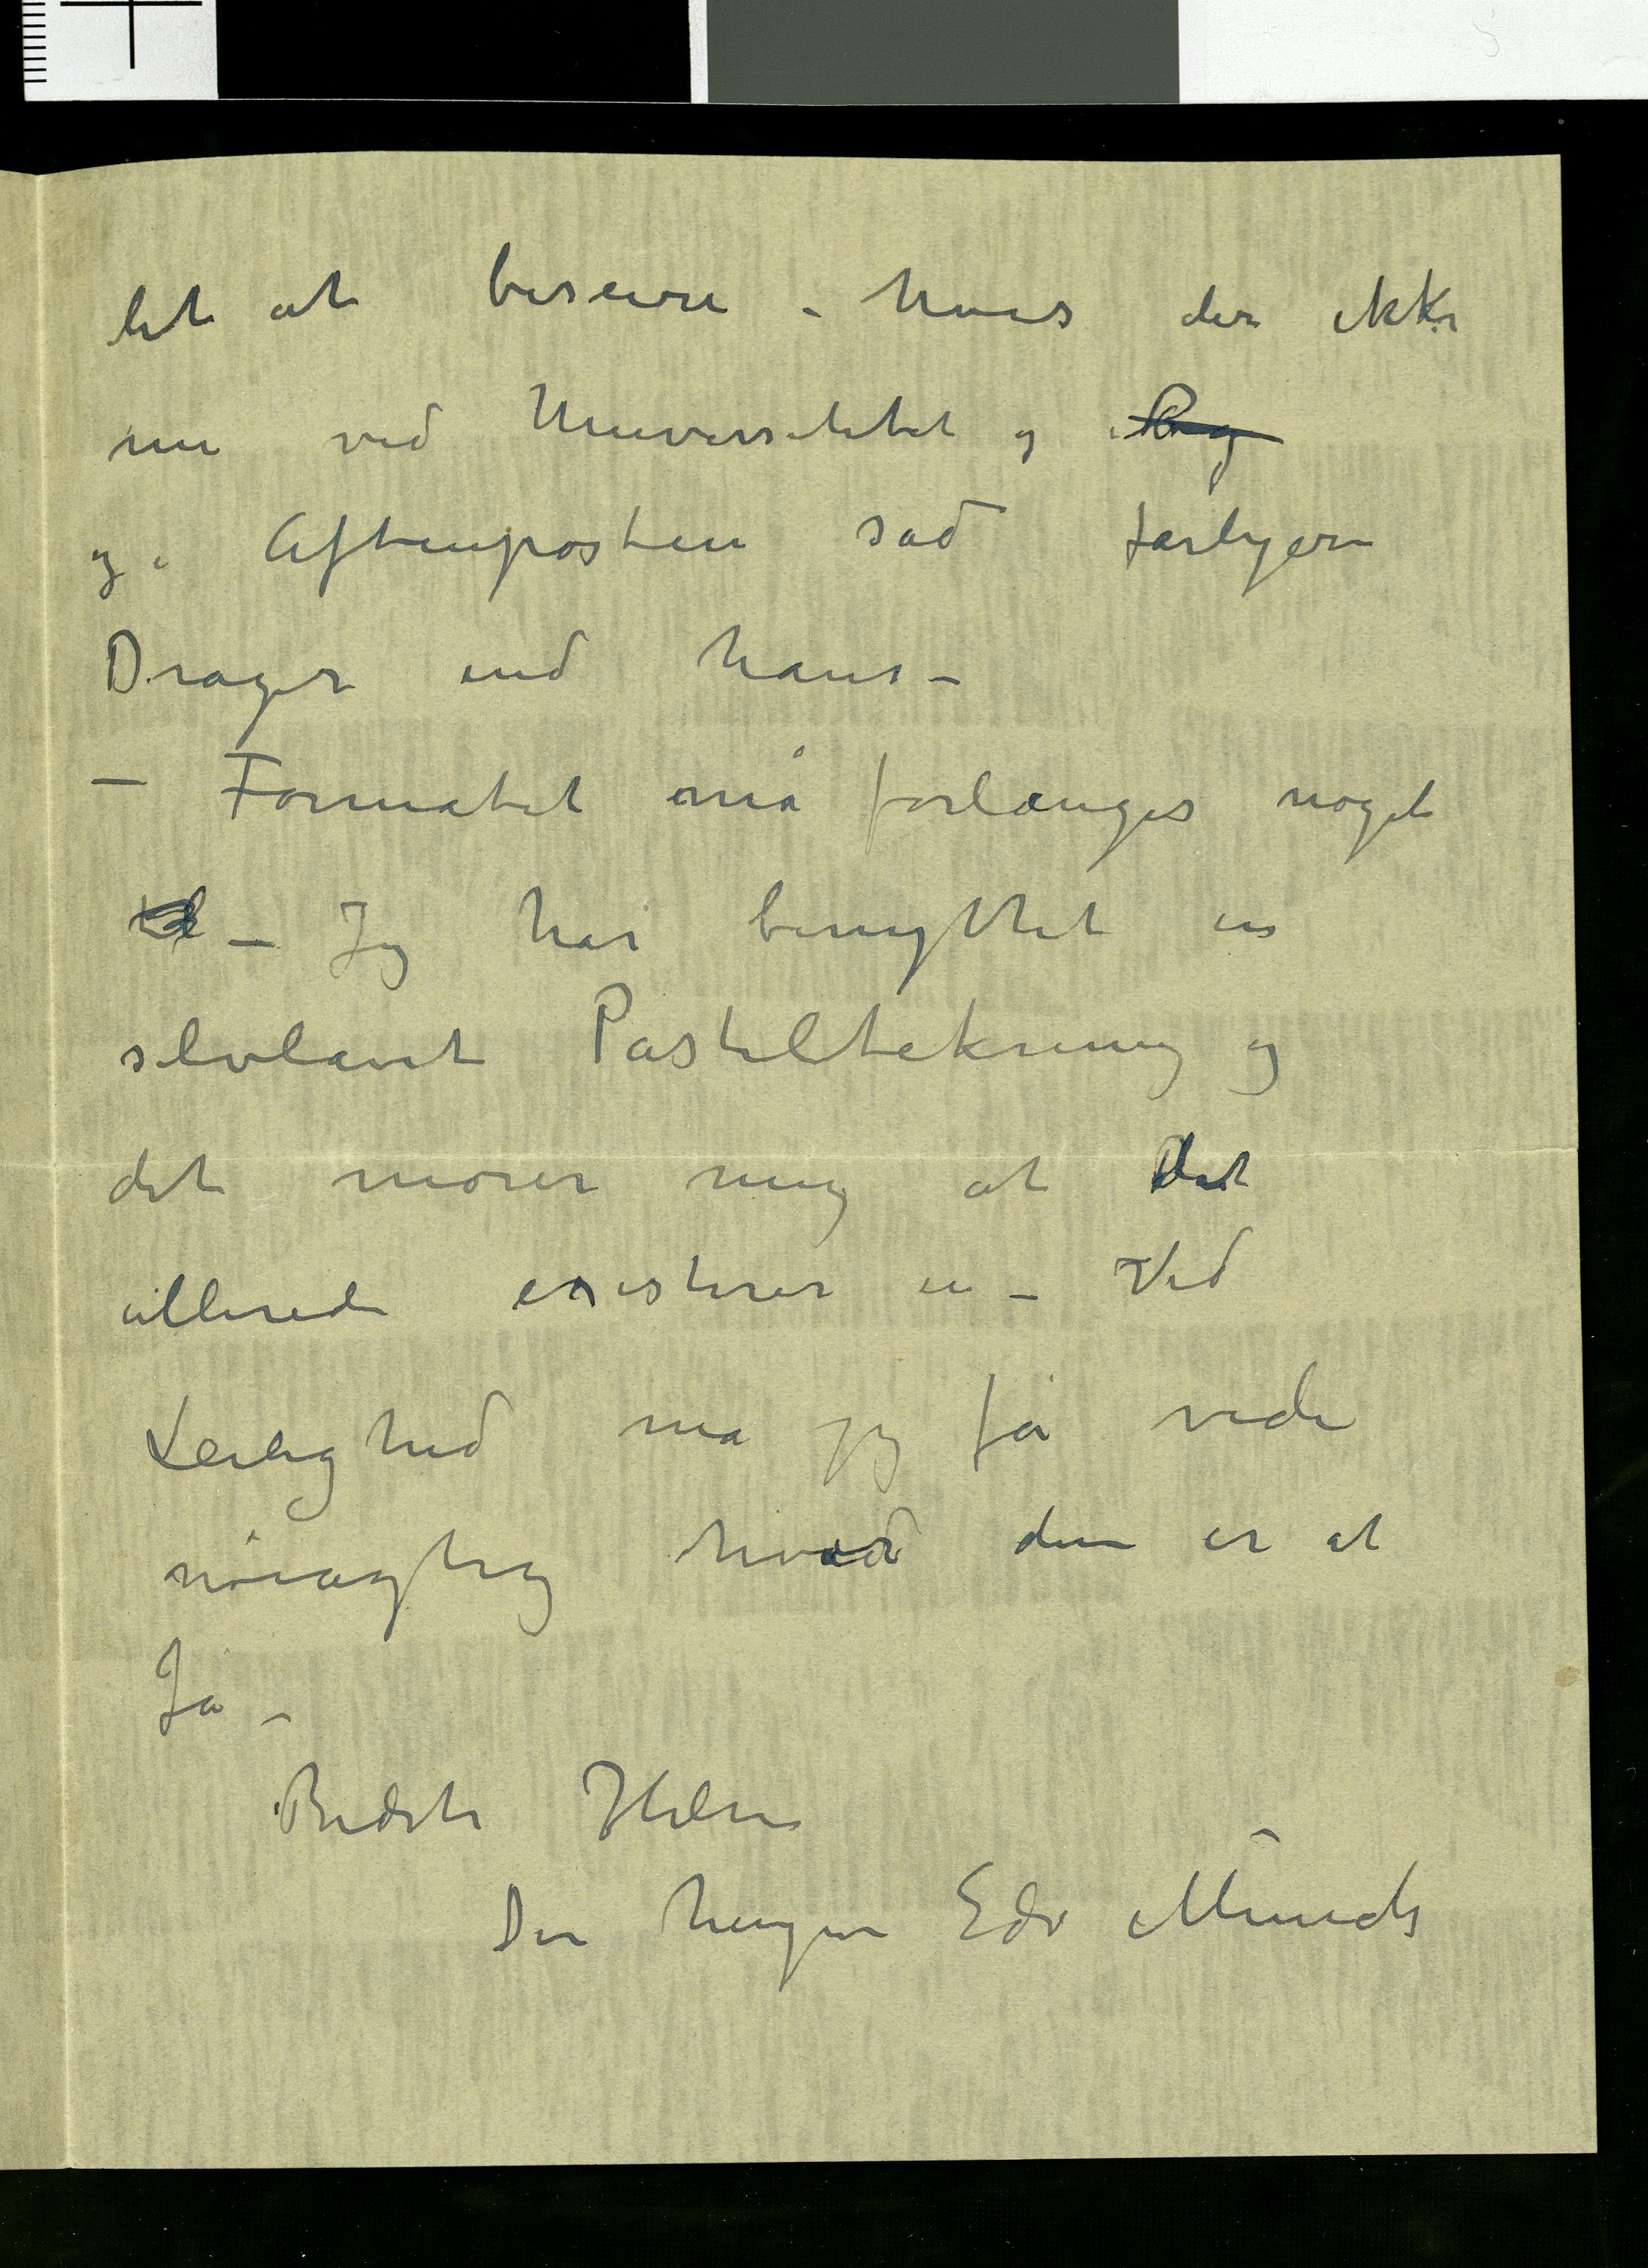 let at beseire – hvis der ikke
nu ved Universitetet og i
og i Aftenposten sad farligere
Drager end hans –
– Formatet må forlænges noget
– Jeg har benyttet en
selvlavet Pasteltekning og
det morer mig at det
allerede existerer en – Ved
Leilighed må jeg få vide
nøiagtig hvad den er at
Ja –
Bedste Hilsen
Din hengivne Edv Munch